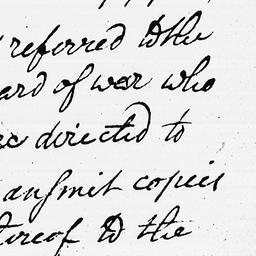 referred to the
ard of war who
re directed to
ansmit copies
tereof to the